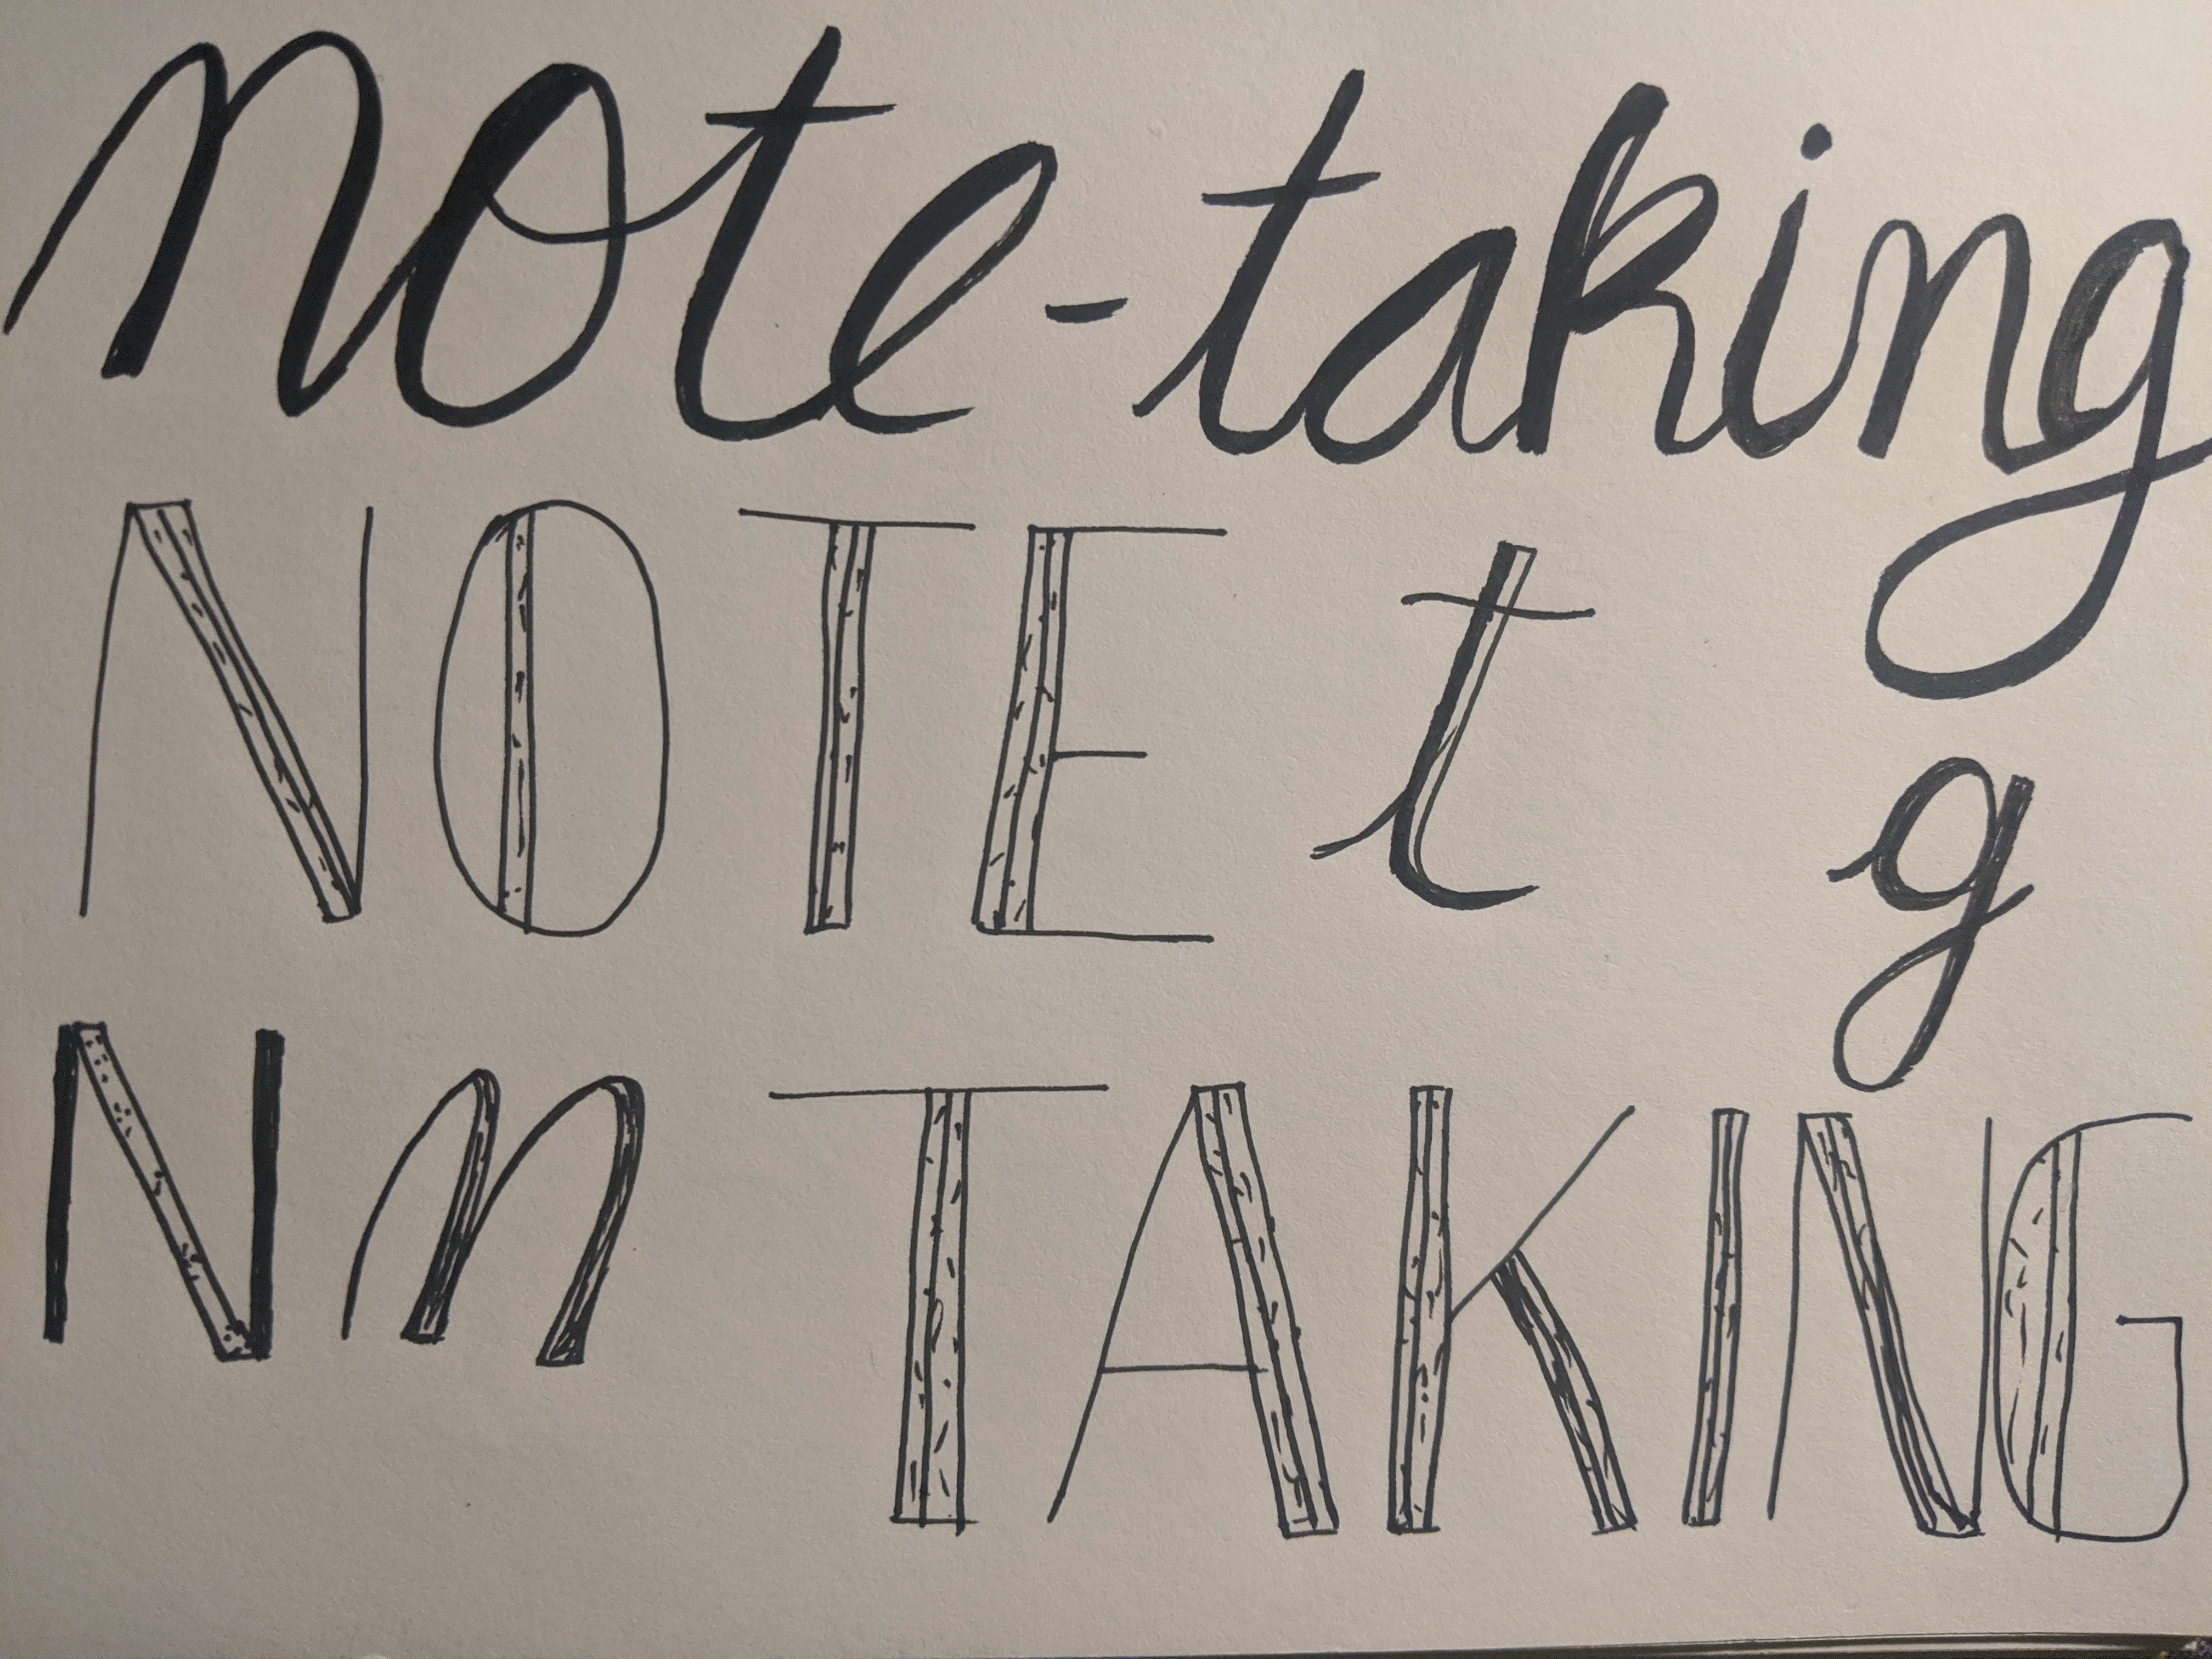 note-taking
NOTE t
g
N n TAKING